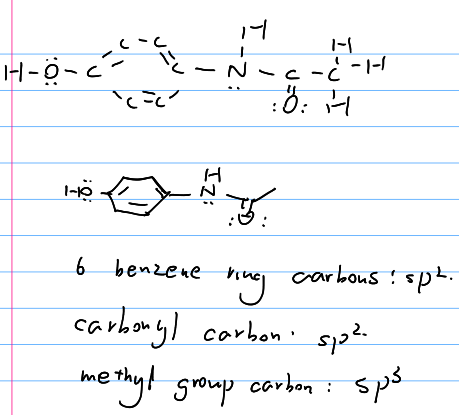 H
C - C
H - O - C = C - N - C - C - H
H
C = C
O
H
H
HO
N
O
6 benzene ring carbons : sp2.
carbonyl carbon. sp2.
methyl group carbon : sp3